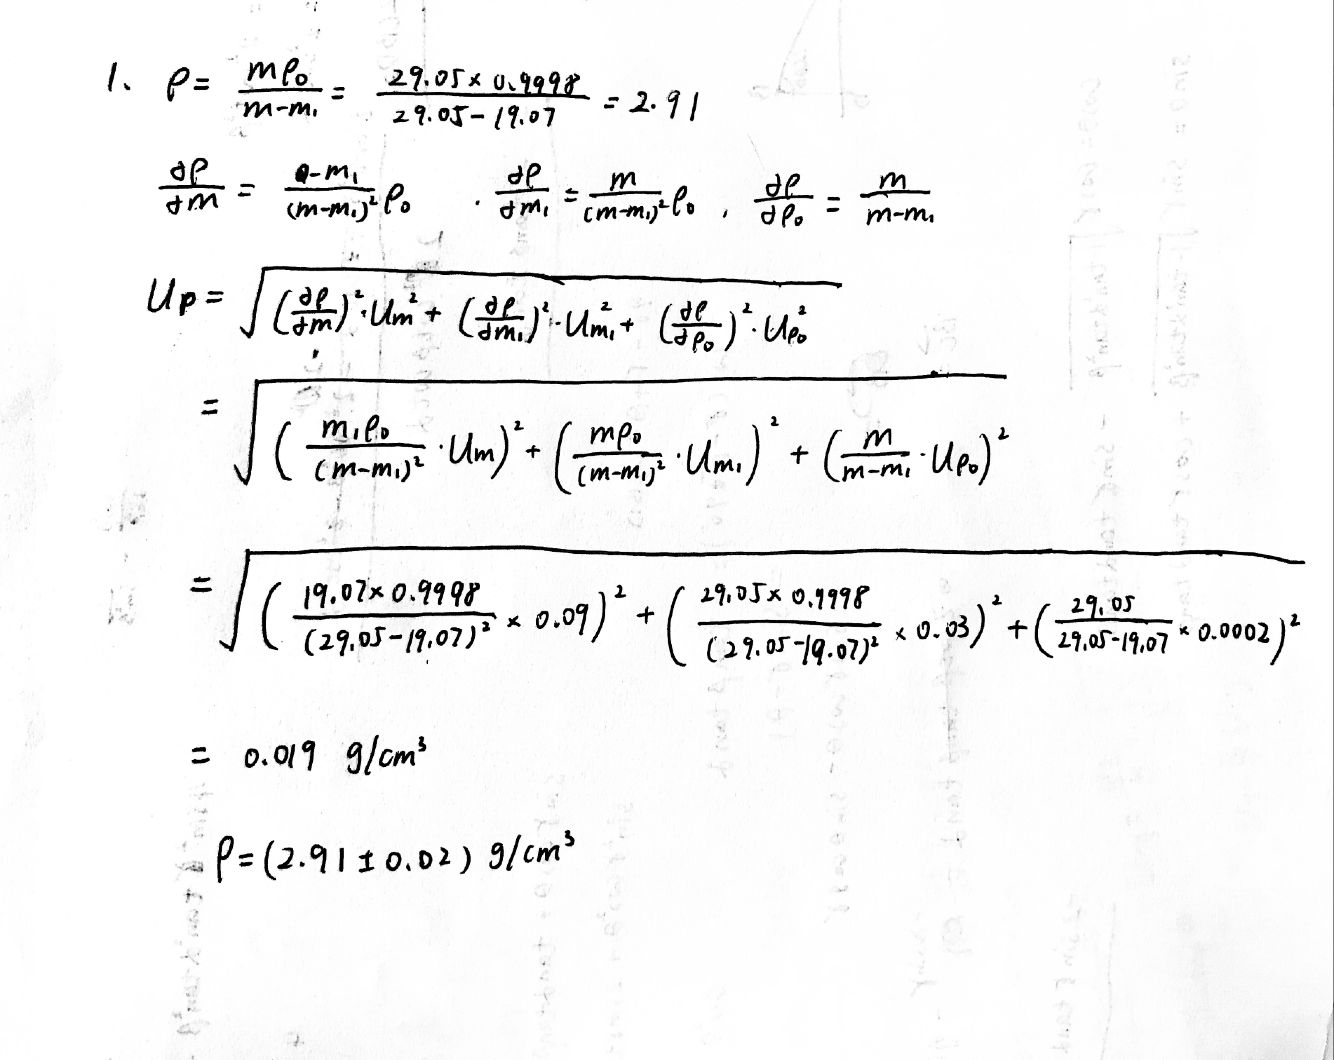 1. ρ = mρ₀/(m-m₁) = (29.05 × 0.9998)/(29.05-19.07) = 2.91
∂ρ/∂m = (-m₁)/(m-m₁)² ρ₀ . ∂ρ/∂m₁ = m/(m-m₁)² ρ₀ , ∂ρ/∂ρ₀ = m/(m-m₁)
Uρ = √((∂ρ/∂m)²·Um² + (∂ρ/∂m₁)²·Um₁² + (∂ρ/∂ρ₀)²·Uρ₀²)
= √((m₁ρ₀/(m-m₁)² ·Um)² + (mρ₀/(m-m₁)² ·Um₁)² + (m/(m-m₁) ·Uρ₀)²)
= √((19.07×0.9998/(29.05-19.07)² × 0.09)² + (29.05×0.9998/(29.05-19.07)² × 0.03)² + (29.05/(29.05-19.07) × 0.0002)²)
= 0.019 g/cm³
ρ = (2.91 ± 0.02) g/cm³